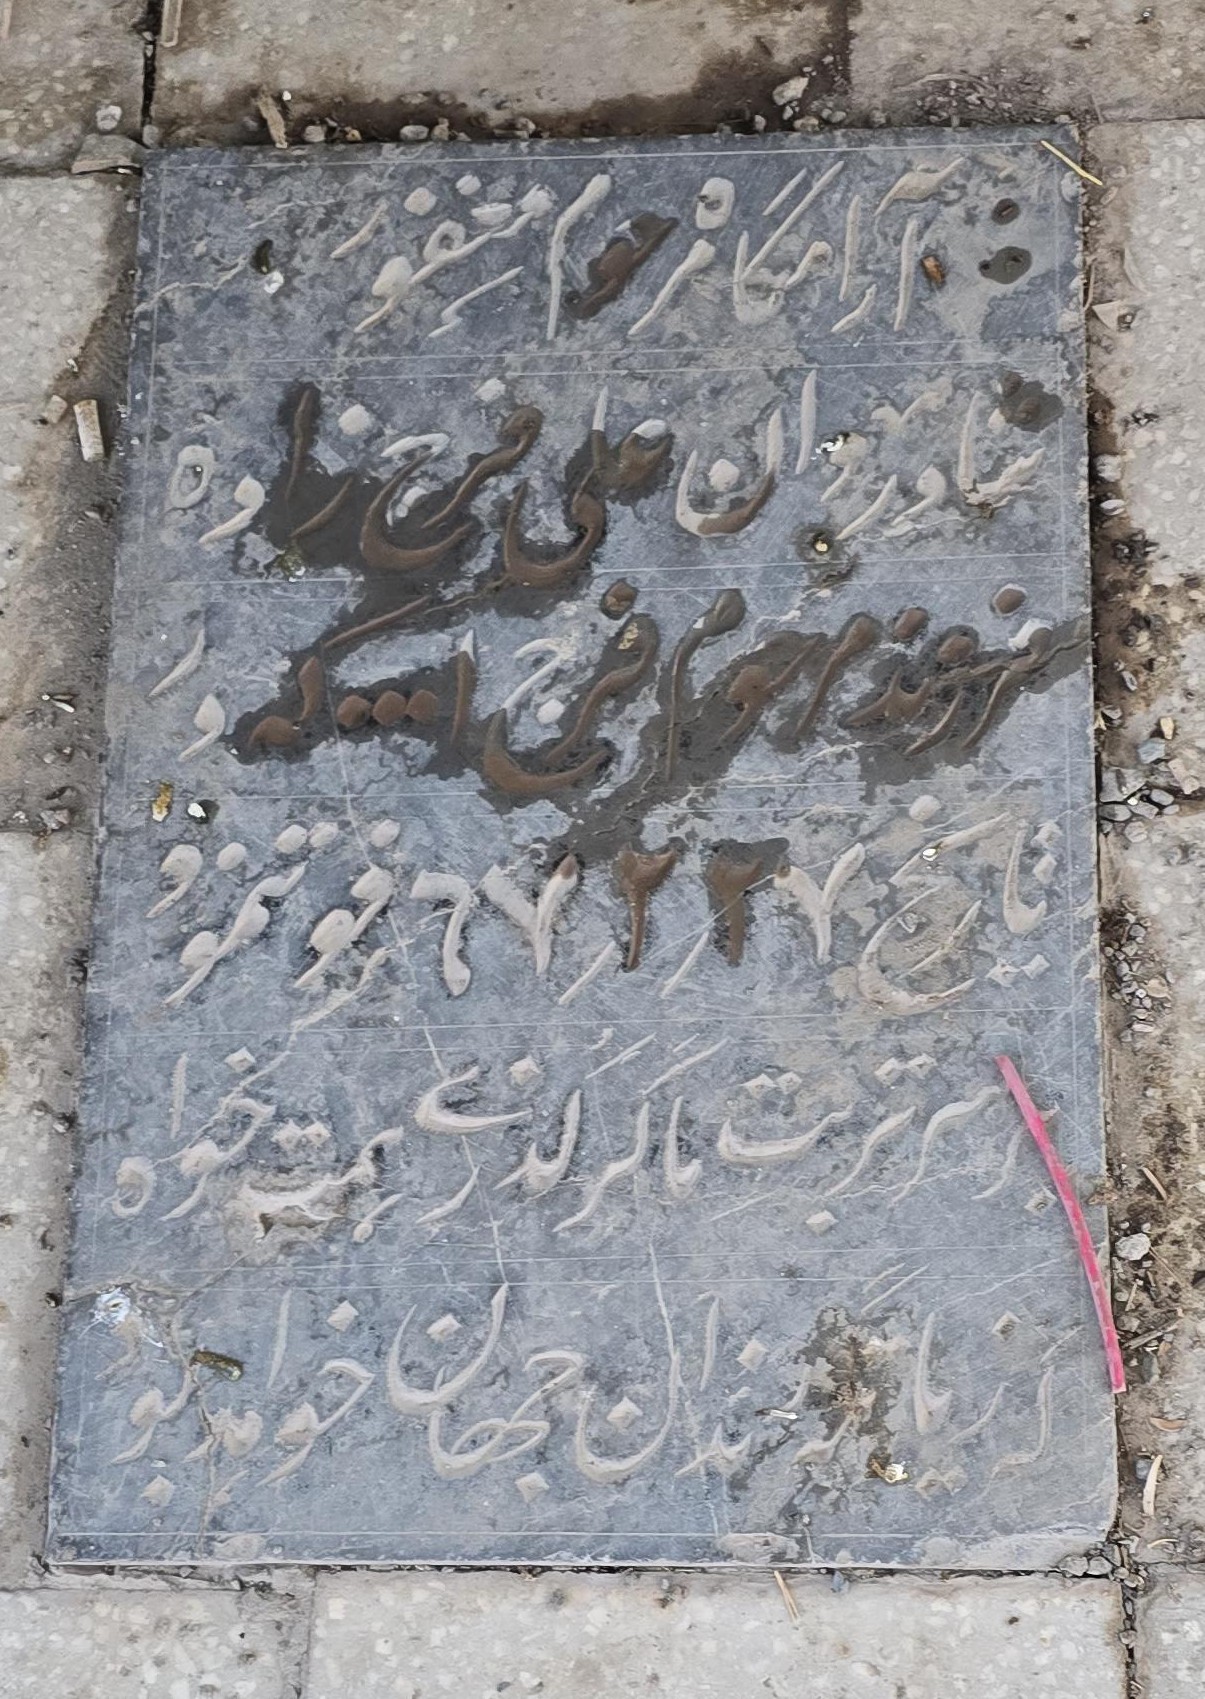 آرامگاه مرحوم مغفور
شاوردان علی فرخ زاده
فرزند مرحوم فرخ که در
تاریخ ۲۷/۲/۶۷ فوت نمود
بر سر تربت ما گر گذری همت خواه
که زیارتگه رندان جهان خواهد بود